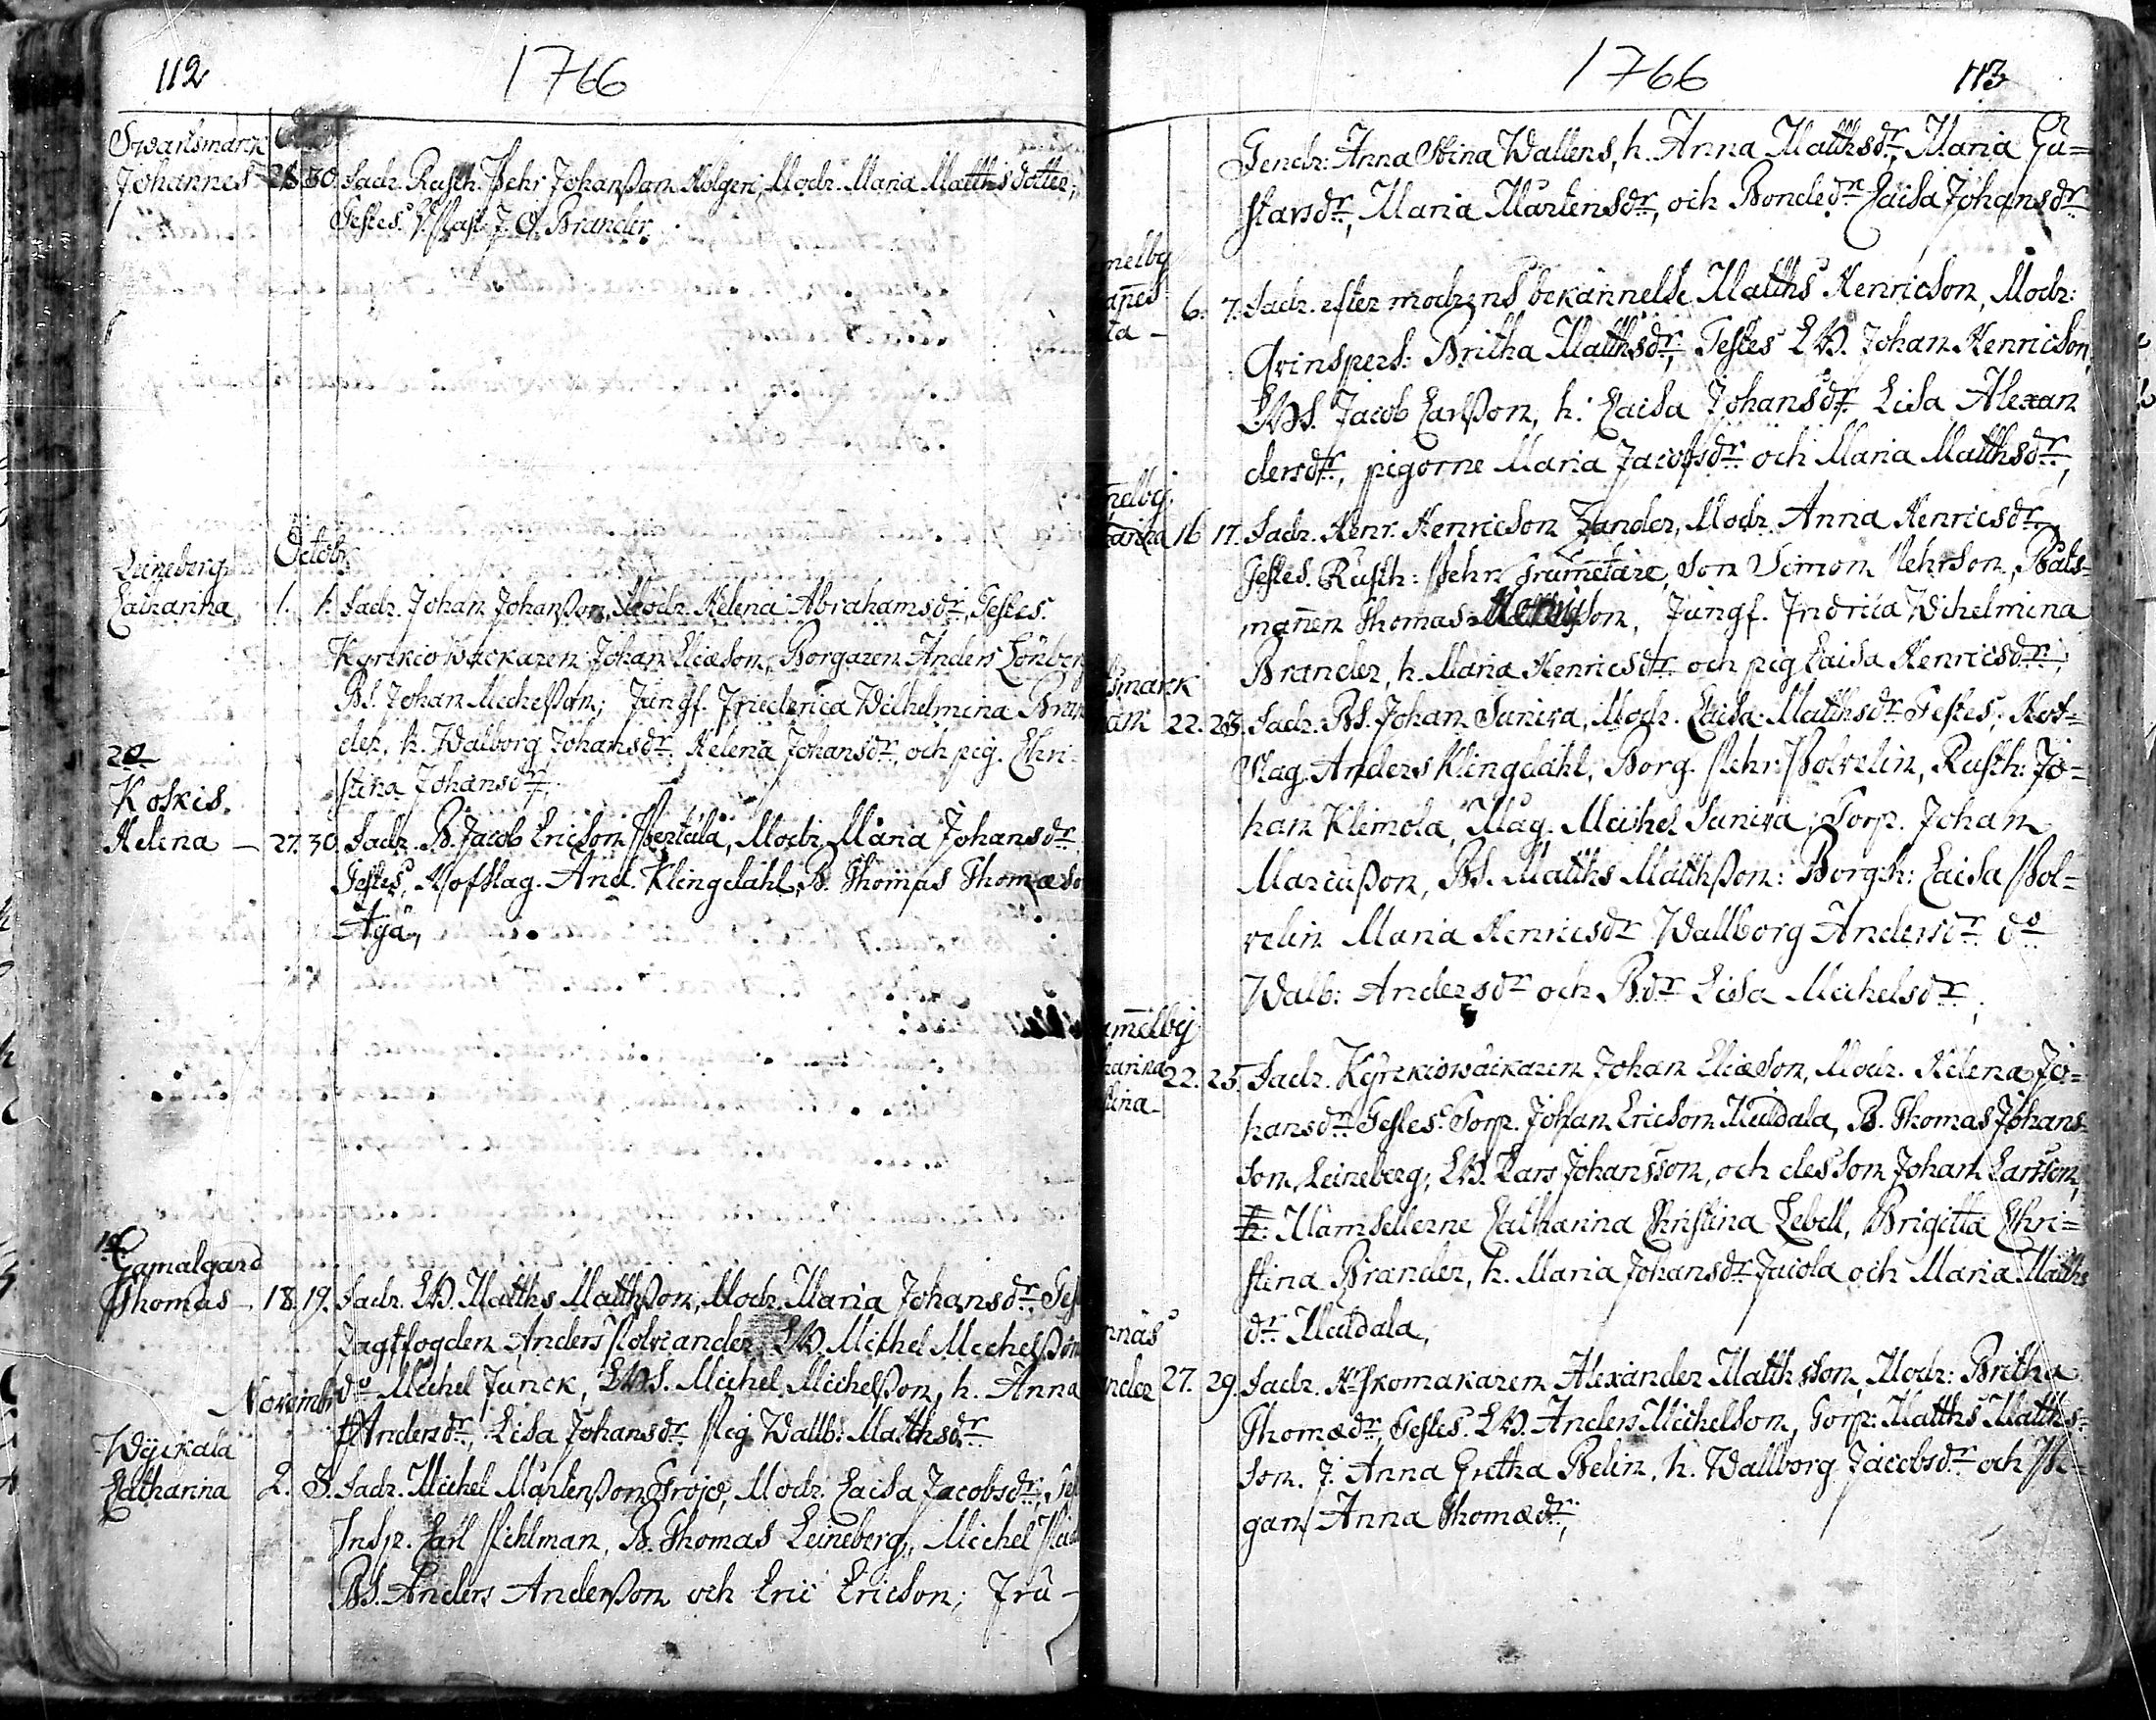 112
1766
Swartsmark
Johannes 28. 30. Fadr. Rusth. Pehr Johanßon Holgers, Modr. Maria Matthsdotter;
Testes V. Past. J. O. Brander.
Octobr
Leineberg
Catharina 1. 1. Fadr. Johan Johanßon, Modr. Helena Abrahamsdr. Testes.
Kyrckiowäckaren Johan Eliæson, Borgaren Anders Lönberg
BS. Johan Michelßon; Jungf. Friederica Wilhelmina Bran
der, h. Walborg Johansdr. Helena Johansdr. och pig. Chri-
stina Johansdr.
Koskis.
Helina – 27. 30. Fadr. B. Jacob Ericson Pertula, Modr. Maria Johansdr.
Testes, Hofslag. And. Klingdahl, B. Thomas Thomæso
Äijä,
Gamalgård
Thomas – 18. 19. Fadr. LB. Matths Matthßon, Modr. Maria Johansdr. Tes
Jagtfogden Anders Polviander, LB. Michel Michelßon
Novembr
do Michel Junck, LBS. Michel Michelßon, h. Anna
Andersdr., Lisa Johansdr. Pig Wallb: Matthsdr.
Wijckala
Catharina 2. 3. Fadr. Michel Mårtenßon Trojo, Modr. Caisa Jacobsdr.,
Insp. Carl Pihlman, B. Thomas Leineberg, Michel
BS. Anders Anderßon och Eric Ericson; Fru –
1766
113
Gendr: Anna Stina Wallens, h. Anna Matthsdr., Maria Gu=
stavsdr, Maria Mårtensdr., och Bondedr Caisa Johansdr
melby
anes
ta – 6. 7. Fadr. efter modrens bekännelse Matths Henricson, Modr:
Qvinspers: Britha Matthsdr, Testes LB. Johan Henricson,
LBS. Jacob Carlßon, h: Caisa Johansdr. Lisa Alexan
dersdr, pigorne Maria Jacobsdr och Maria Matthsdr,
melby.
tarina 16 17. Fadr. Henr. Henricson Zander, Modr Anna Henricsdr
Testes. Rusth: Pehr Trumetare, son Simon Pehrson, Båts-
mannen Thomas son, Jungf. Fridrica Wilhelmina
Brander, h. Maria Henricsdr och pig Caisa Henricsdr;
smark
am 22. 23. Fadr. BS. Johan Suniva, Modr. Caisa Matthsdr Testes; Hof=
slag. Anders Klingdahl, Borg. Pehr Polvelin, Rusth: Jo=
han Klemola, Mag. Michel Suniva; Torp. Johan
Marcußon, BS. Matths Matthßon: Borgh: Caisa Pol=
velin Maria Henricsdr Wallborg Andersdr do
Walb: Andersdr och Bdr Lisa Michelsdr;
ammelby
harina
stina – 22. 25. Fadr. Kyrckiowäckaren Johan Eliæson, Modr. Helena Jo=
hansdr Testes. Torp. Johan Ericson Muldala, B. Thomas Johans-
son Leineberg; LB. Lars Johansson, och des son Johan Larsson,
h: Mamsellerne Catharina Christina Lebell, Brigitta Chri=
stina Brander, h. Maria Johansdr Jucola och Maria Matths
dr. Muldala,
nnäs
nder 27. 29. Fadr. Hr Skomakaren Alexander Matthsson, Modr: Britha
Thomædr, Testes. LB. Anders Michelson, Torp: Matths Matths-
son. J. Anna Gretha Belin, h. Wallborg Jacobsdr och Pi-
gan Anna Thomædr;